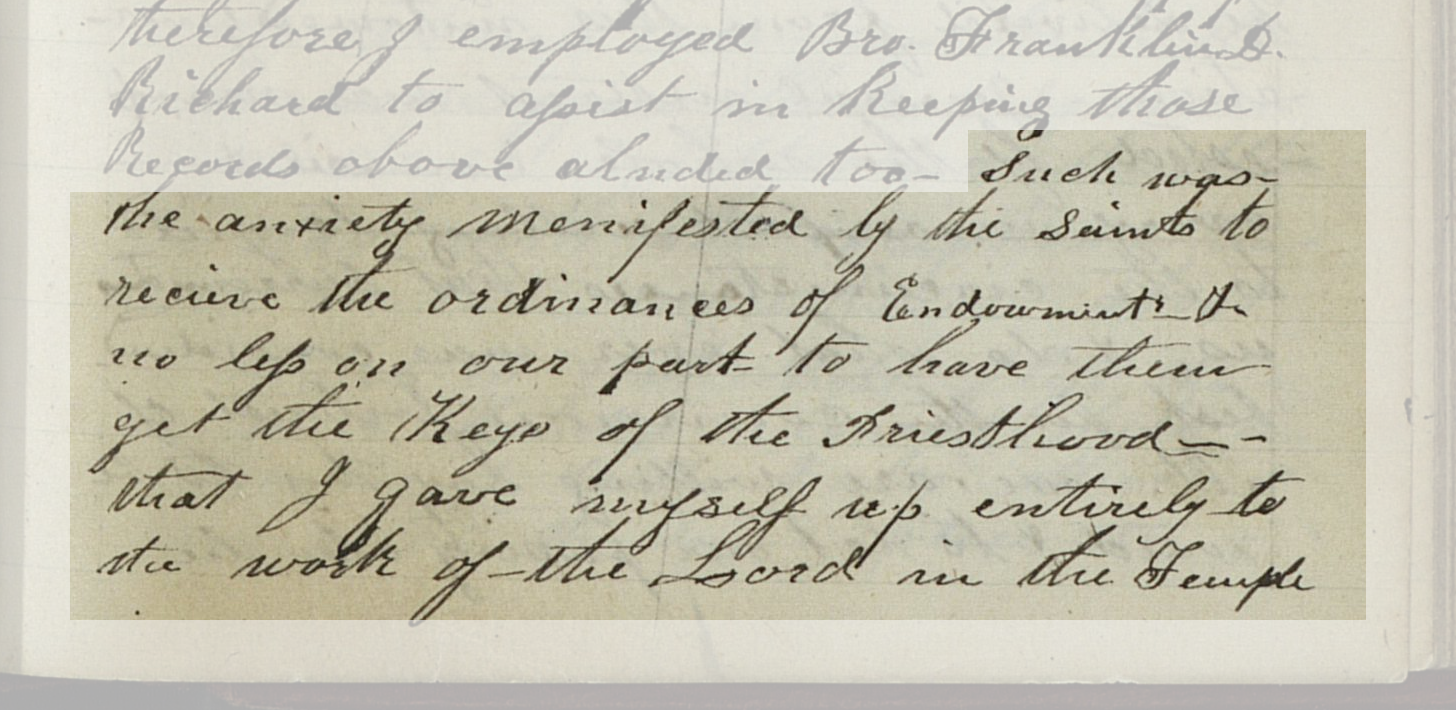 therefore I employed Bro. Franklin D.
Richard to assist in Keeping those
Records above aluded too- Such was-
the anxiety menifested by the Saints to
recieve the ordinances of Endowments &
no less on our part to have them
get the Keys of the Priesthood--
that I gave myself up entirely to
the work of the Lord in the Temple